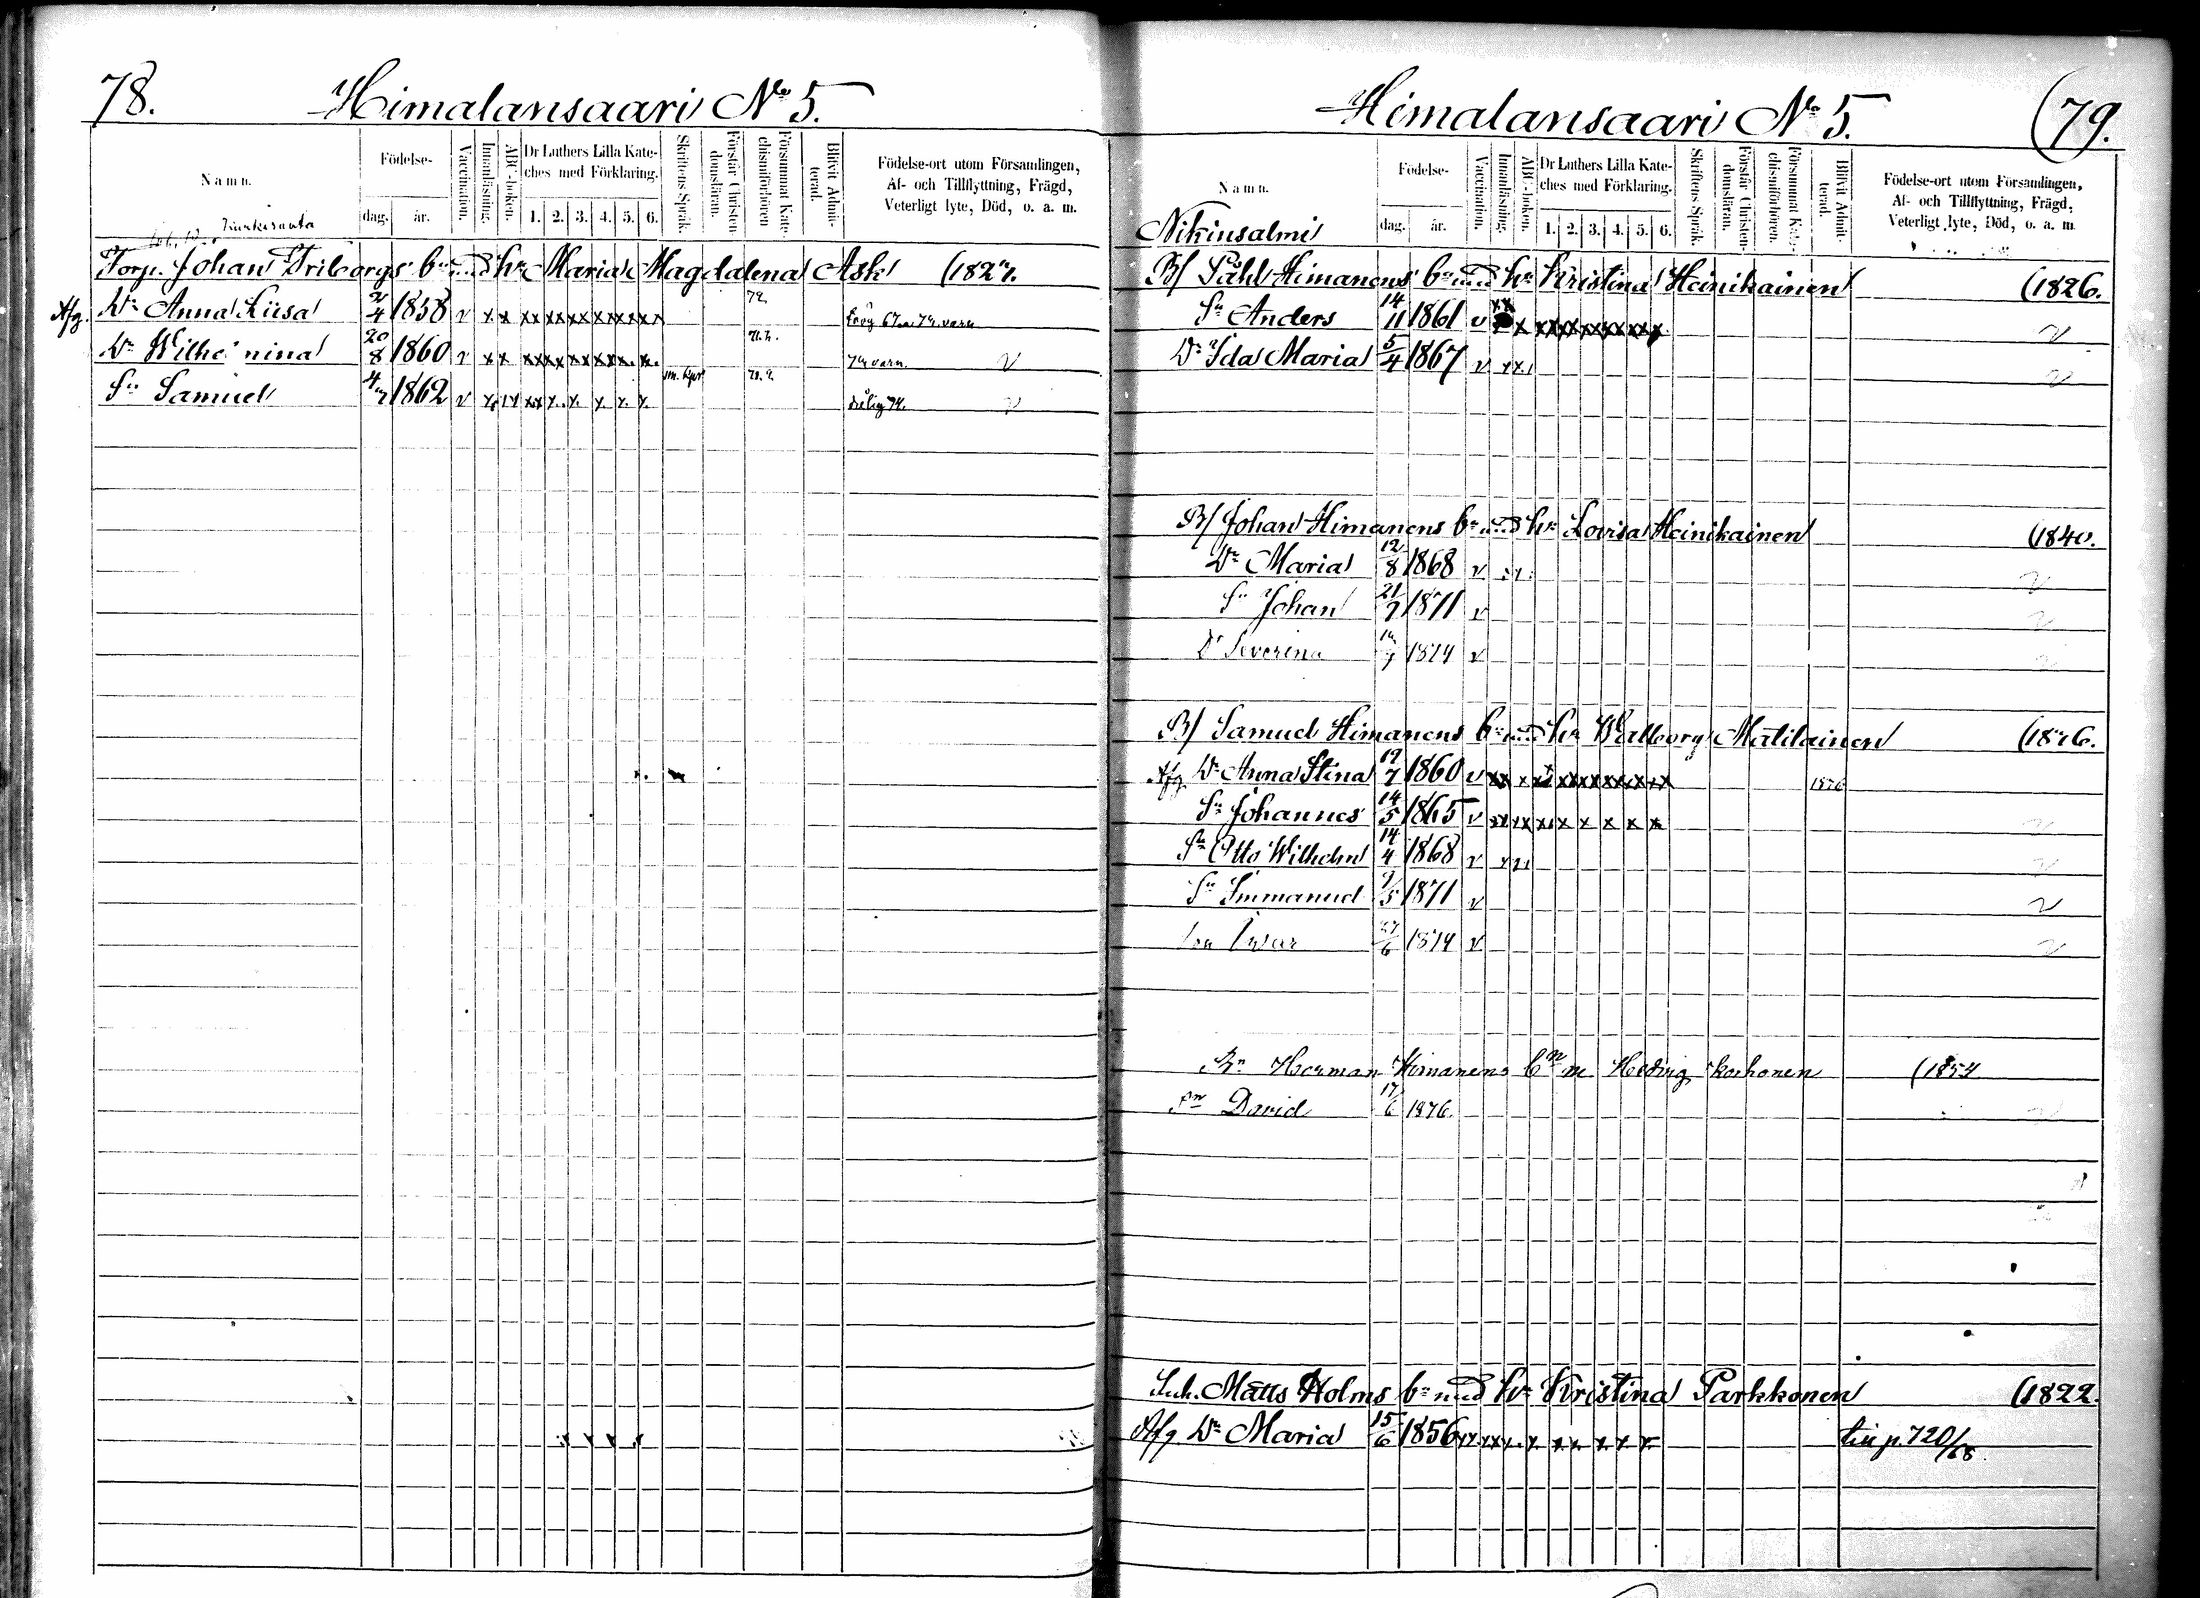 78.
Himalansaari No 5.
Namn.
Födelse-
dag.
år.
Vaccination.
Innanläsning.
ABC-boken.
Dr Luthers Lilla Kate-
ches med Förklaring.
1. 2. 3. 4. 5. 6.
Skriftens Språk.
Förstår Christen-
domsläran.
Försummat Kate-
chismiförhören.
Blifvit Admit-
terad.
Födelse-ort utom Församlingen,
Af- och Tillflyttning, Frägd,
Veterligt lyte, Död, o. a. m.
Torp. Johan Friborgs bn med hu Maria Magdalena Ask (1827.
Afg. Dr Anna Liisa 2/4 1858 v x x xx xx xx xx xx xx 72.
Dr Wilhelmina 20/8 1860 v x x xx xx xx xx xx. x.
Sn Samuel 4/7 1862 v x x x. x. x. x. x.
Himalansaari No 5.
(79.
Namn.
Födelse-
dag.
år.
Vaccination.
Innanläsning.
ABC-boken.
Dr Luthers Lilla Kate-
ches med Förklaring.
1. 2. 3. 4. 5. 6.
Skriftens Språk.
Förstår Christen-
domsläran.
Försummat Kate-
chismiförhören.
Blifvit Admit-
terad.
Födelse-ort utom Församlingen,
Af- och Tillflyttning, Frägd,
Veterligt lyte, Död, o. a. m.
Nikinsalmi
B/ Påhl Himanens bn med hu Kristina Heinikainen (1826.
Sn Anders 14/11 1861 v x xx xx xx xx xx x v
Dr Ida Maria 5/4 1867 v xx v
B/ Johan Himanens bn med hu Lovisa Heinikainen (1840.
Dr Maria 12/8 1868 v v
Sn Johan 21/7 1871 v v
Dr Severina 1874 v v
B/ Samuel Himanens bn med hu Walborg Matilainen (1826.
Afg Dr Anna Stina 19/7 1860 v xx x xx xx xx xx xx xx 1876
Sn Johannes 14/5 1865 v xx xx x x x x x v
Sn Otto Wilhelm 14/4 1868 v v
Sn Immanuel 9/5 1871 v v
Son Ivar 27/6 1874 v v
Bn Herman Himanens bn m Hedvig Korhonen (1854
Sn David 17/6 1876.
Inh. Matts Holms bn med hu Kristina Parkkonen (1822.
Afg Dr Maria 15/6 1856 xx xx x. x x x. x x x till p. 720/68.